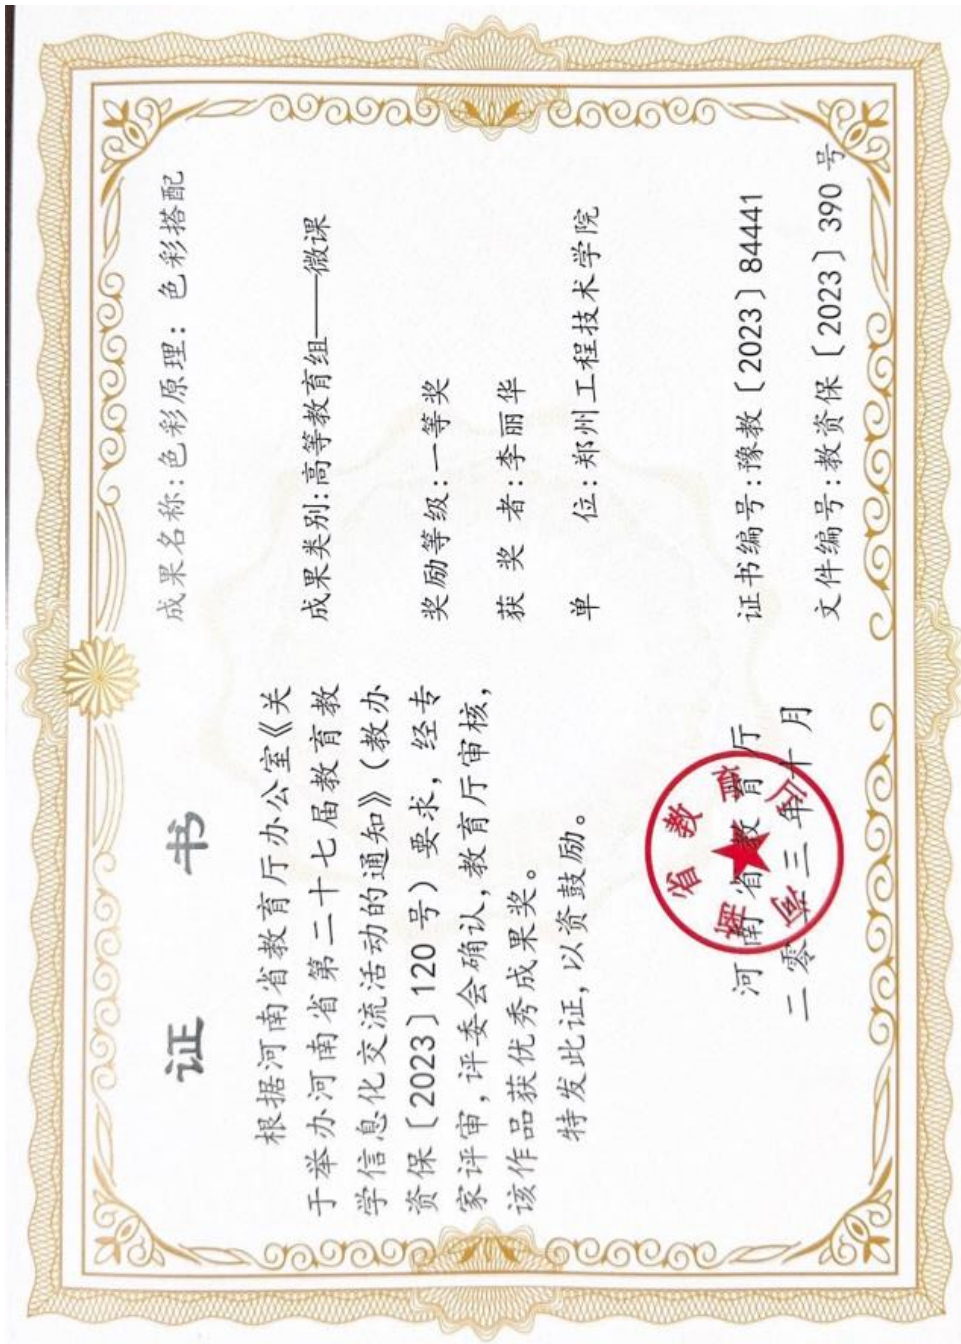 证 书
根据河南省教育厅办公室《关
于举办河南省第二十七届教育教
学信息化交流活动的通知》（教办
资保〔2023〕120 号）要求，经专
家评审,评委会确认,教育厅审核,
该作品获优秀成果奖。
特发此证,以资鼓励。
河南省教育厅
二零二三年十月
河南省教育厅
成果名称:色彩原理：色彩搭配
成果类别:高等教育组——微课
奖励等级:一等奖
获 奖 者:李丽华
单 位:郑州工程技术学院
证书编号:豫教〔2023〕84441
文件编号:教资保〔2023〕390 号